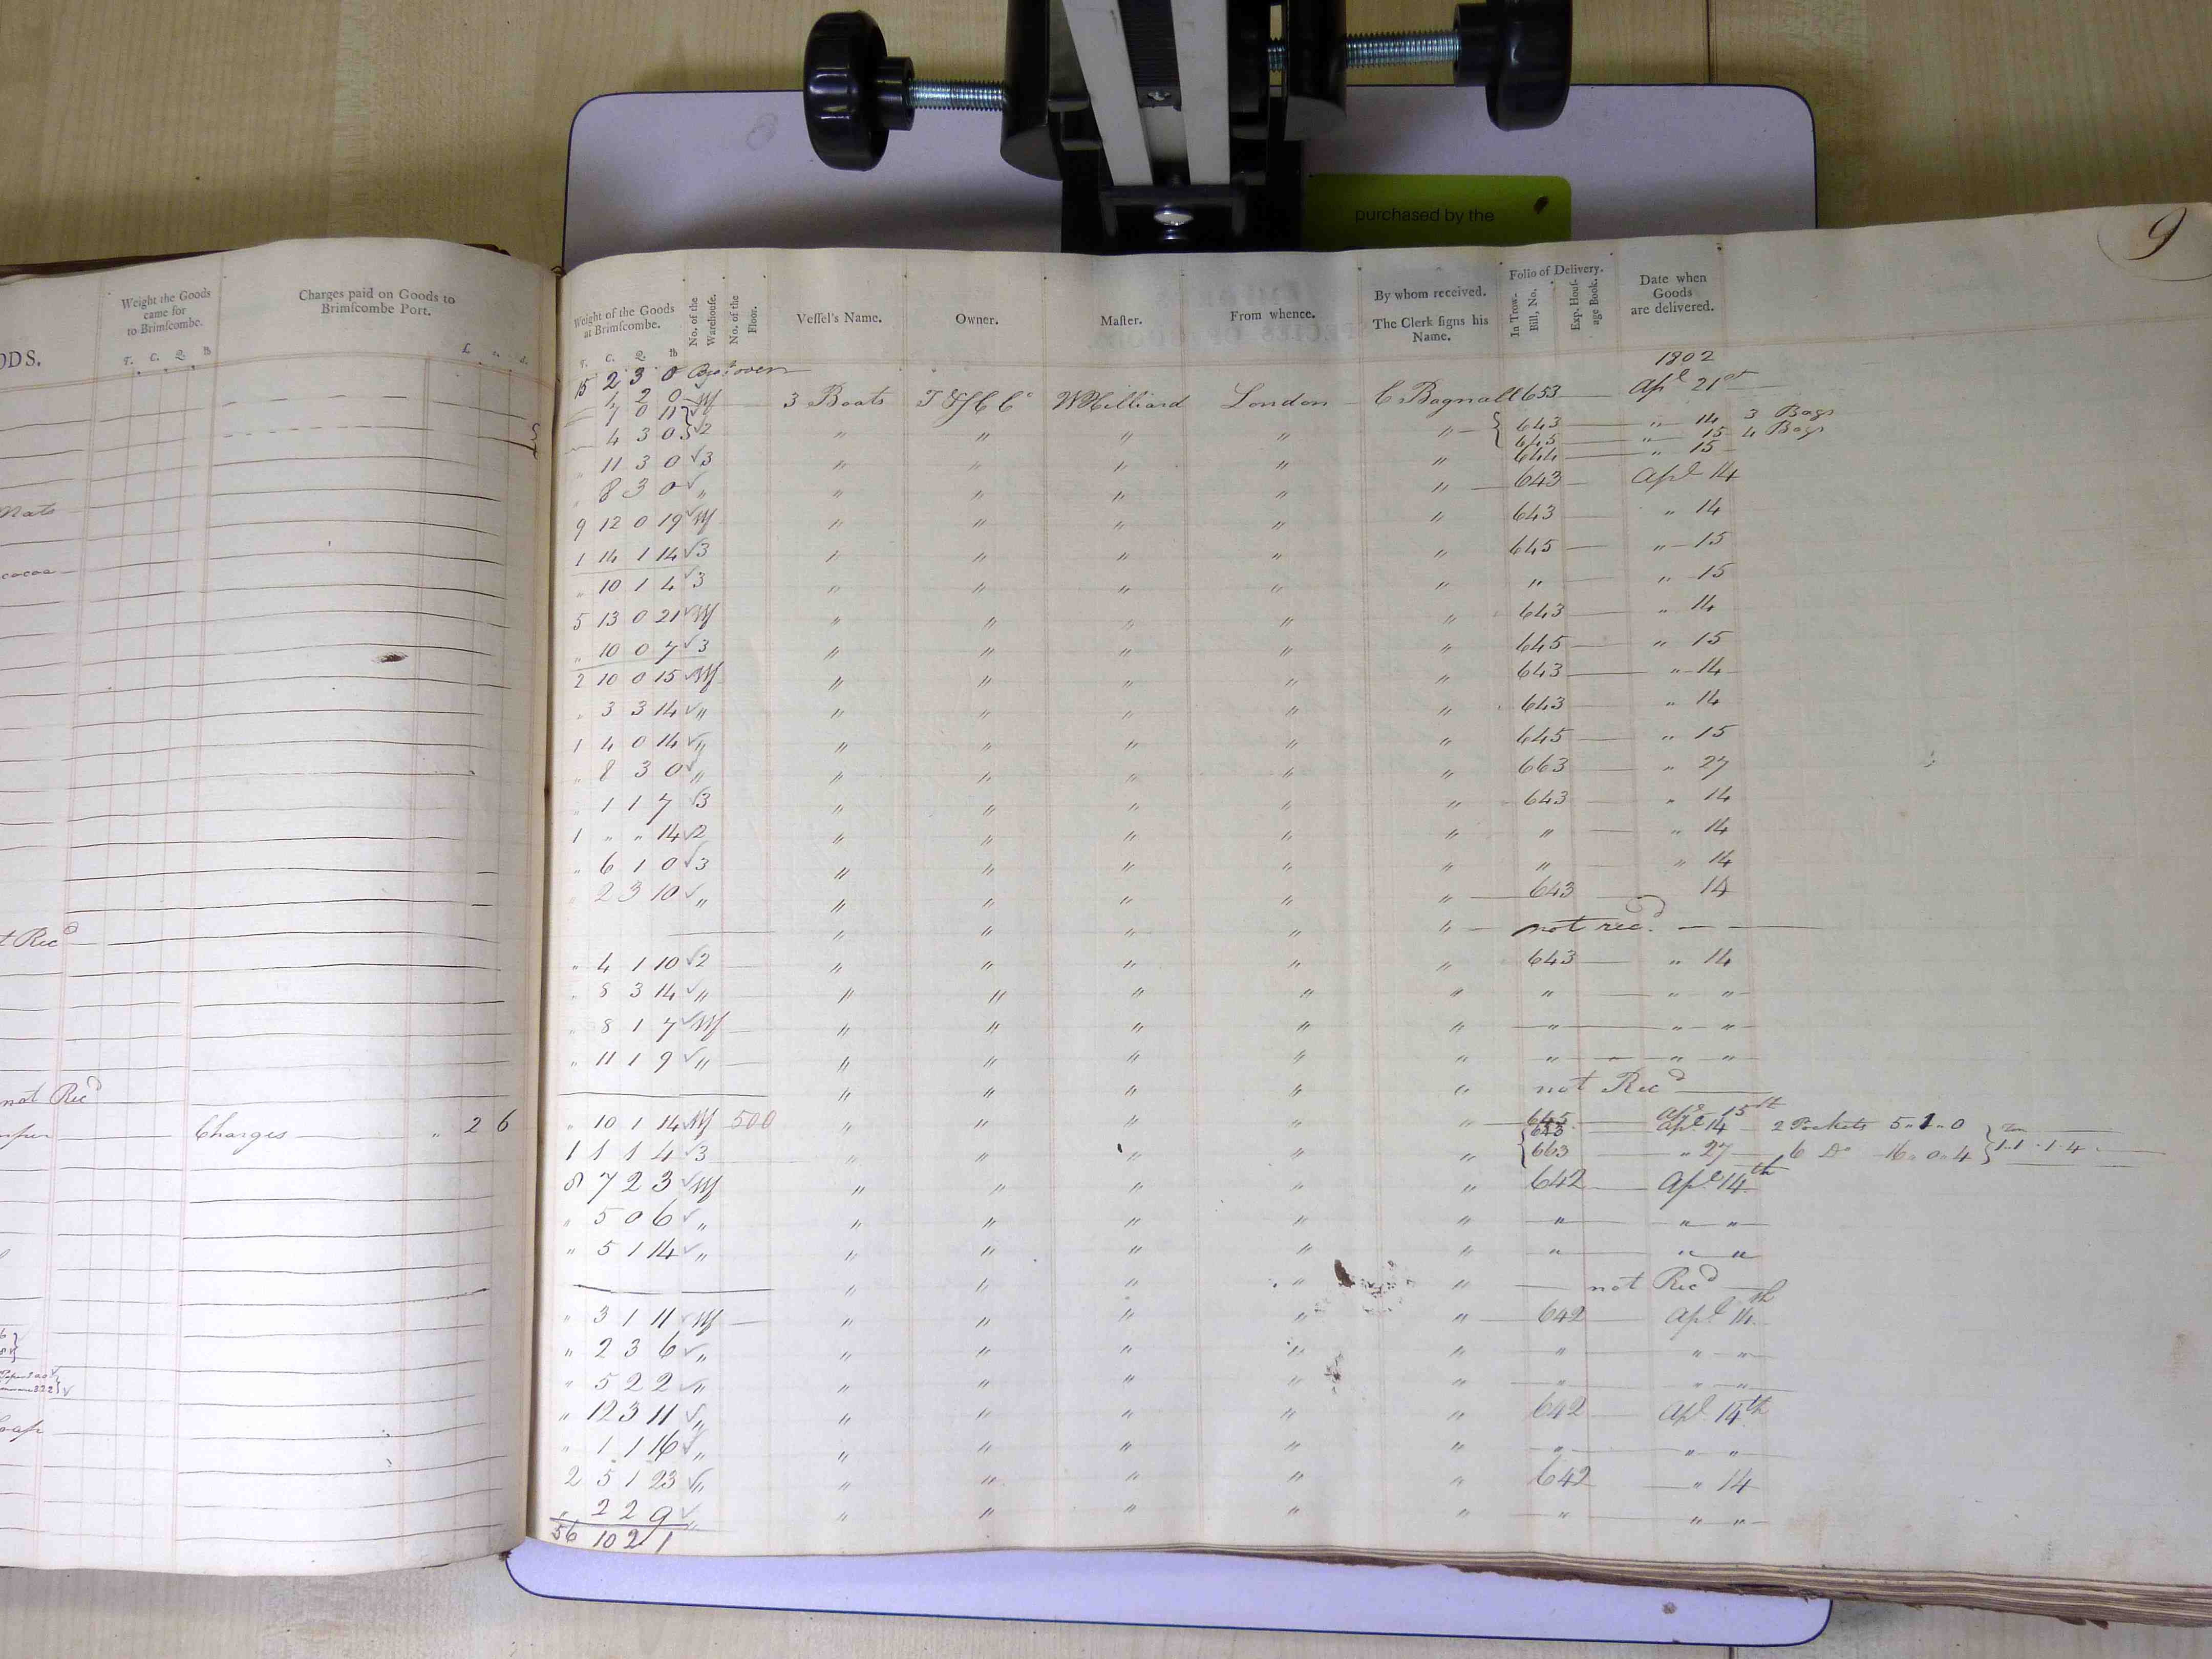 purchased by the
9
ODS.
Weight the Goods
came for
to Brimſcombe.
T. C. Q lb
Charges paid on Goods to
Brimſcombe Port.
Mats
cocoa
t Recd
not Recd
Charges " 2 6
Weight of the Goods
at Brimſcombe.
No. of the
Warehouſe.
No. of the
Floor.
Veſſel's Name.
Owner.
Maſter.
From whence.
By whom received.
The Clerk ſigns his
Name.
Folio of Delivery.
In Trow-
Bill, No.
Exp. Houſ-
age Book.
Date when
Goods
are delivered.
T. C. Q lb
1802
15 2 3 0
4 2 0 Wf 3 Boats W Hilliard London C Bagnall 653 Apl 21st
7 0 11
4 3 0 √2 " " " " " { 643 " 14 3 Bags
645 " 15 4 Bags
11 3 0 √3 " " " " " 644 " 15
8 3 0 √ " " " " " " 643 Apl 14
9 12 0 19 √ Wf " " " " " 643 " 14
1 14 1 14 √3 " " " " " 645 " 15
" 10 1 4 √3 " " " " " " " 15
5 13 0 21 √ Wf " " " " " 643 " 14
" 10 0 7 √3 " " " " " 645 " 15
2 10 0 15 √ Wf " " " " " 643 " 14
" 3 3 14 √ " " " " " " 643 " 14
1 4 0 14 √ " " " " " " 645 " 15
" 8 3 0 √ " " " " " " 663 " 27
" 1 1 7 √3 " " " " " 643 " 14
1 " " 14 √2 " " " " " " " 14
" 6 1 0 √3 " " " " " " " 14
" 2 3 10 √ " " " " " " 643 14
" " " " " not recd.
" 4 1 10 √2 " " " " " 643 " 14
" 8 3 14 √ " " " " " " " " "
" 8 1 7 √ Wf " " " " " " " "
" 11 1 9 √ " " " " " " " " "
" " " " " not Recd
" 10 1 14 √ Wf 500 " " " " " 645 Apl 15th
1 1 1 4 √3 " " " " " { 643 Apl 14 2 Pockets 5 " 1 " 0
663 " 27 6 Do 16 " 0 " 4 } 1 " 1 " 1 " 4
8 7 2 3 √ Wf " " " " " 642 Apl 14th
" 5 0 6 √ " " " " " " " " "
" 5 1 14 √ " " " " " " " " "
" " " " " not Recd
" 3 1 11 √ Wf " " " " " 642 Apl 14th
" 2 3 6 √ " " " " " " " " "
" 5 2 2 √ " " " " " " " " "
" 12 3 11 √ " " " " " " 642 Apl 14th
" 1 1 16 √ " " " " " " " " "
2 5 1 23 √ " " " " " " 642 " 14
" 2 2 9 √ " " " " " " " " "
56 10 2 1